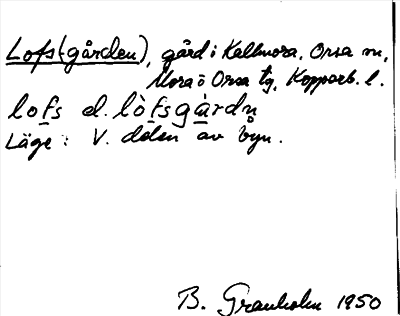 Lofs(-gården), gård i Kallmora, Orsa sn,
Mora o Orsa tg, Kopparb. l.
lofs el. lòfsgàrdn̥
Läge: V. delen av byn.
B. Granholm 1950